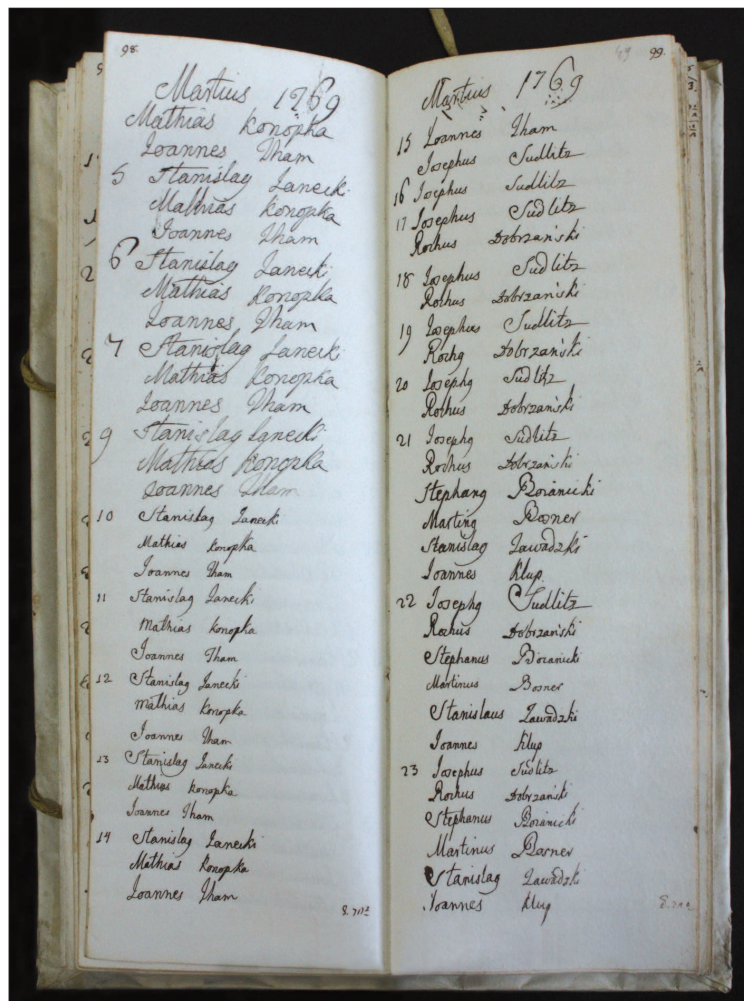 98.
Martius 1769
Mathias Konopka
Ioannes Tham
5 Stanislaq Janecki
Mathias Konopka
Ioannes Tham
6 Stanislaq Janecki
Mathias Konopka
Ioannes Tham
7 Stanislaq Janecki
Mathias Konopka
Ioannes Tham
9 Stanislaq Janecki
Mathias Konopka
Ioannes Tham
10 Stanislaq Janecki
Mathias Konopka
Ioannes Tham
11 Stanislaq Janecki
Mathias Konopka
Ioannes Tham
12 Stanislaq Janecki
Mathias Konopka
Ioannes Tham
13 Stanislaq Janecki
Mathias Konopka
Ioannes Tham
14 Stanislaq Janecki
Mathias Konopka
Ioannes Tham
49 99.
Martius 1769
15 Ioannes Tham
Josephus Sudlitz
16 Josephus Sudlitz
17 Josephus Sudlitz
Rochus Dobrzański
18 Josephus Sudlitz
Rochus Dobrzański
19 Josephus Sudlitz
Rochq Dobrzański
20 Josephq Sudlitz
Rochus Dobrzański
21 Josephq Sudlitz
Rochus Dobrzański
Stephanq Boranicki
Martinq Bosner
Stanislaq Zawadzki
Ioannes Klup
22 Josephq Sudlitz
Rochus Dobrzański
Stephanus Boranicki
Martinus Bosner
Stanislaus Zawadzki
Ioannes Klup
23 Josephus Sudlitz
Rochus Dobrzański
Stephanus Boranicki
Martinus Bosner
Stanislaq Zawadzki
Ioannes Klup